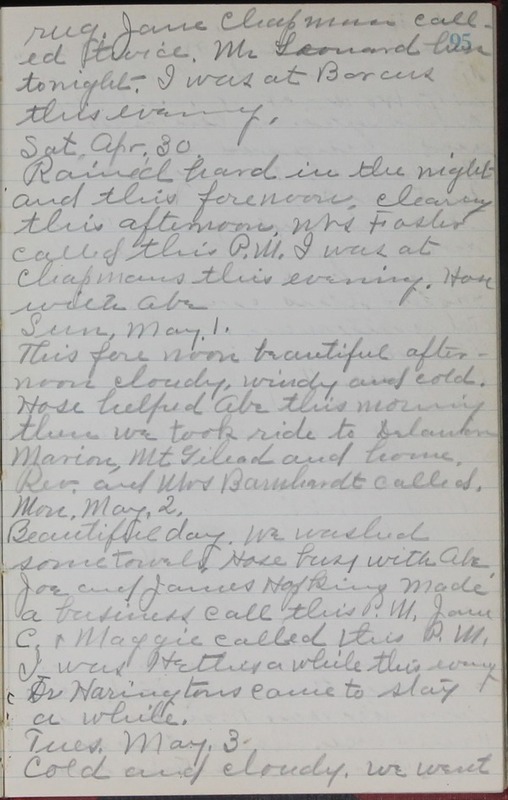 rug. Jane Chapman call-
ed twice. Mr Leonard here
95
tonight. I was at Barcus
this evening.
Sat. Apr. 30.
Rained hard in the night
and this forenoon, clearing
this afternoon. Mrs Foster
called this P.M. I was at
Chapmans this evening. Hose
with Abe
Sun, May. 1.
This fore noon beautiful after-
noon cloudy, windy and cold.
Hose helped Abe this morning
then we took ride to Delaware
Marion, Mt Gilead and home.
Rev. and Mrs Barnhardt called.
Mon, May. 2.
Beautiful day. We washed
some towels, Hose busy with Abe.
Joe and James Hopkins made
a business call this P.M. Jane
C. & Maggie called this P.M.
I was a while this evening
Dr Haringtons came to stay
a while.
Tues. May. 3.
Cold and cloudy. we went